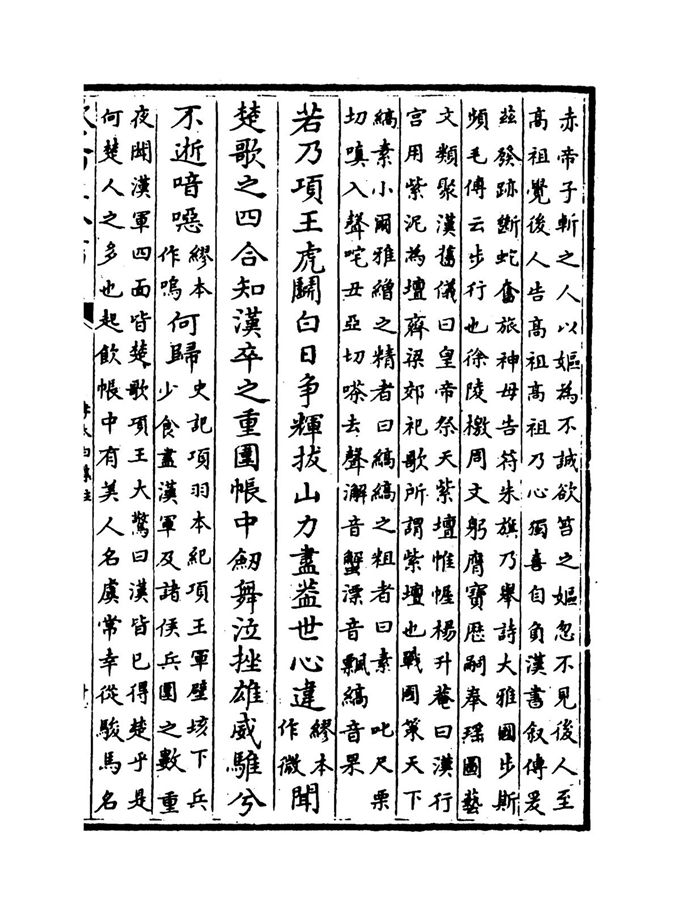 赤帝子斬之人以嫗為不誠欲笞之嫗忽不見後人至
高祖覺後人告高祖高祖乃心獨喜自負漢書叙傳爰
兹發跡斷蛇奮旅神母告符朱旗乃舉詩大雅國步斯
頻毛傳云步行也徐陵檄周文躬膺寳厯嗣奉瑶圖藝
文類聚漢舊儀曰皇帝祭天紫壇帷幄楊升菴曰漢行
宫用紫泥為壇齊梁郊祀歌所謂紫壇也戰國策天下
縞素小爾雅繒之精者曰縞縞之粗者曰素 叱尺栗
切嗔入聲咤丑亞切嗏去聲澥音蟹漂音飄縞音杲
若乃項王虎鬭白日争輝拔山力盡葢世心違繆本作微聞
楚歌之四合知漢卒之重圍帳中劒舞泣挫雄威騅兮
不逝喑噁繆本作嗚何歸史記項羽本紀項王軍壁垓下兵
少食盡漢軍及諸侯兵圍之數重
夜聞漢軍四面皆楚歌項王大驚曰漢皆已得楚乎是
何楚人之多也起飲帳中有美人名虞常幸從駿馬名